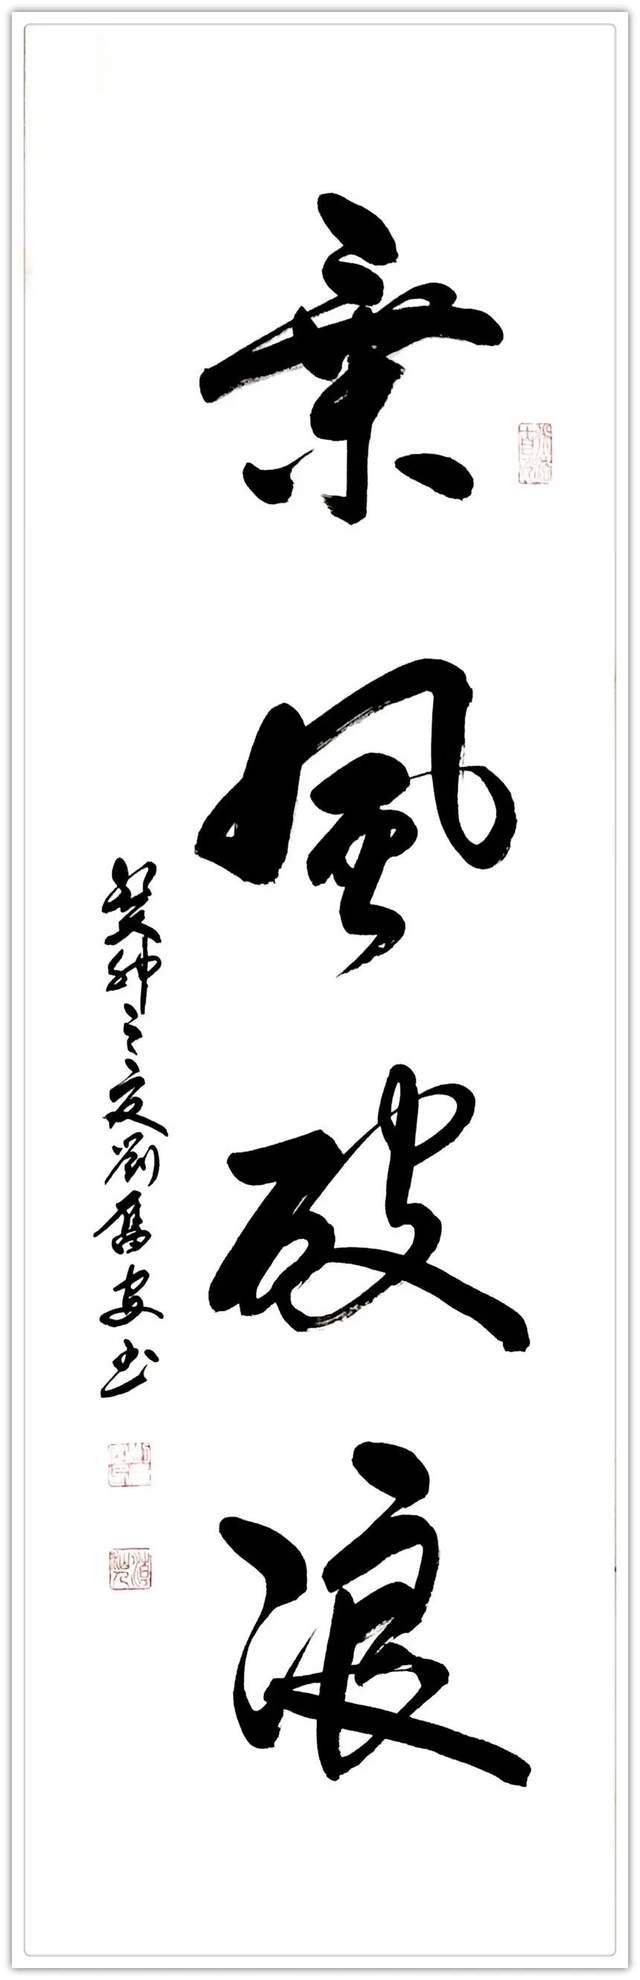 乘風破浪
癸卯之夏劉舊安书